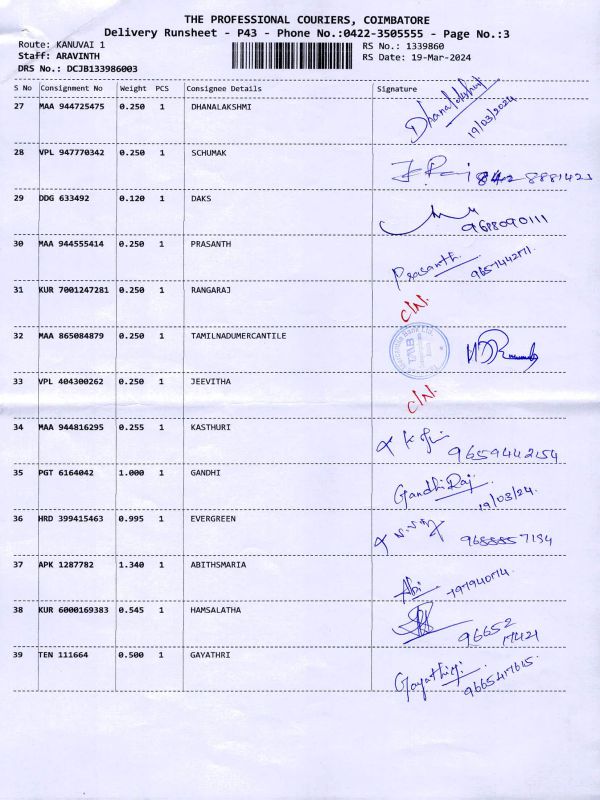 THE PROFESSIONAL COURIERS, COIMBATORE
Delivery Runsheet - P43 - Phone No.:0422-3505555 - Page No.:3
Route: KANUVAI 1 RS No.: 1339860
Staff: ARAVINTH RS Date: 19-Mar-2024
DRS No.: DCJB133986003
S No Consignment No Weight PCS Consignee Details Signature
27 MAA 944725475 0.250 1 DHANALAKSHMI Dhanalakshmi
19/03/2024
28 VPL 947770342 0.250 1 SCHUMAK
29 DDG 633492 0.120 1 DAKS
9688090111
30 MAA 944555414 0.250 1 PRASANTH Prasanth
31 KUR 7001247281 0.250 1 RANGARAJ C/N.
32 MAA 865084879 0.250 1 TAMILNADUMERCANTILE
33 VPL 404300262 0.250 1 JEEVITHA C/N.
34 MAA 944816295 0.255 1 KASTHURI
9659442154
35 PGT 6164042 1.000 1 GANDHI GandhiRaj
19/03/24.
36 HRD 399415463 0.995 1 EVERGREEN
37 APK 1287782 1.340 1 ABITHSMARIA Abi
38 KUR 6000169383 0.545 1 HAMSALATHA
96652
17421
39 TEN 111664 0.500 1 GAYATHRI Gayathiri
9665417615.